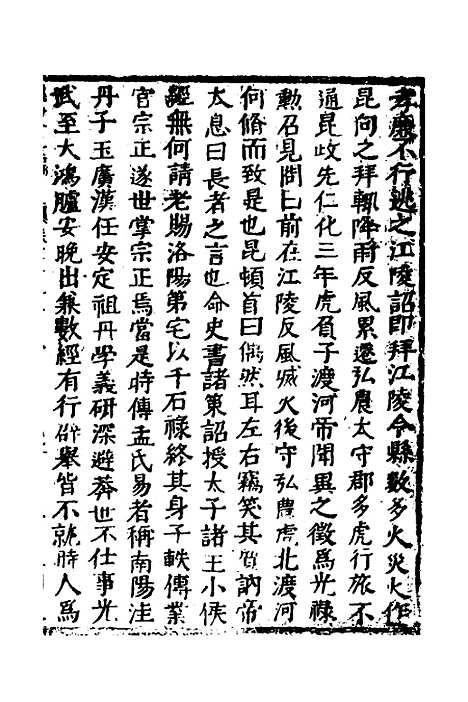 孝廉不行逃之江陵詔即拜江陵令縣數多火災火作
昆向之拜輒降雨反風累遷弘農太守郡多虎行旅不
通昆政先仁化三年虎負子渡河帝聞異之徵爲光祿
勳召見問曰前在江陵反風滅火後守弘農虎北渡河
何脩而致是也昆頓首曰偶然耳左右竊笑其質訥帝
太息曰長者之言也命史書諸策詔授太子諸王小侯
經無何請老賜洛陽第宅以千石祿終其身子軼傳業
官宗正遂世掌宗正焉當是時傳孟氏易者稱南陽洼
丹子玉廣漢任安定祖丹學義研深避莽世不仕事光
武至大鴻臚安晚出兼數經有行辟舉皆不就時人爲